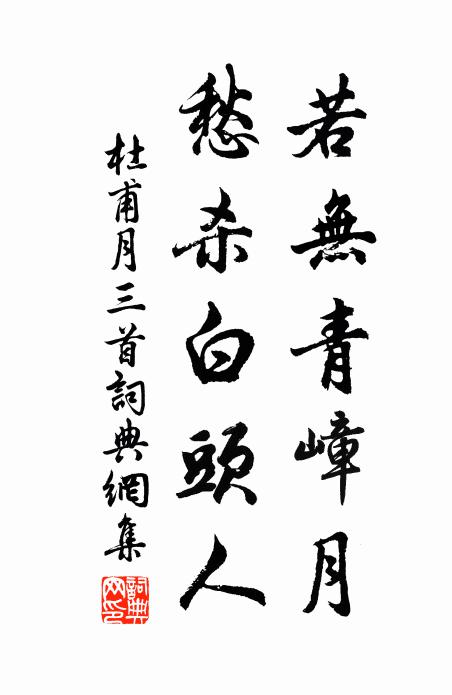 若無青嶂月
愁杀白頭人
杜甫月三首詞典網集
詞典網印